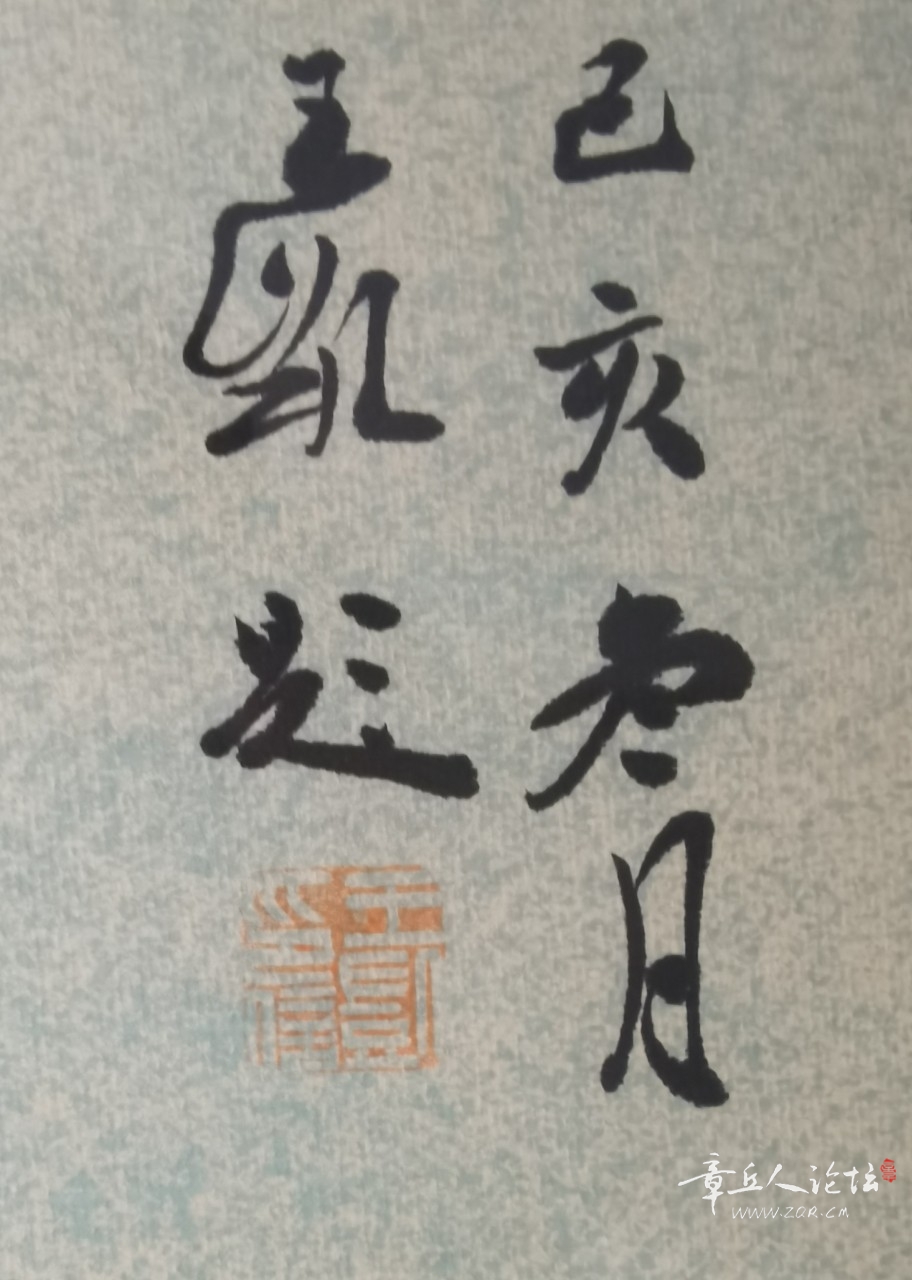 己亥冬月
王凯题
章丘人论坛
www.ZQR.CM